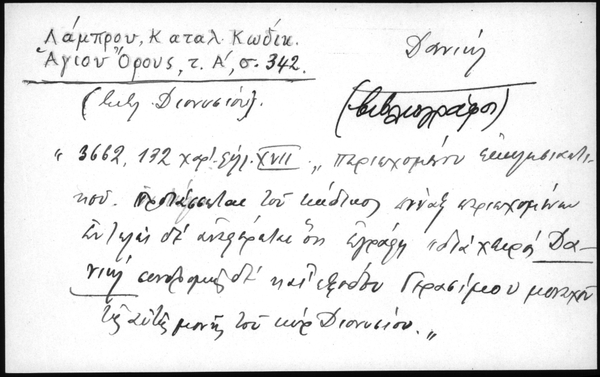 Λάμπρου, Καταλ. Κωδίκ.
Ἁγίου Ὄρους, τ. Α', σ. 342.
Δανιήλ
(Βιβλ. Διονυσίου).
(βιβλιογράφος)
"3662, 132 χαρτ. 8ον XVII „ περιεχομένου ἐκκλησιαστι-
κοῦ. Προτάσσεται τοῦ κώδικος πίναξ περιεχομένων
ἐν τέλει δὲ ἀναφέρεται ὅτι ἐγράφη "διὰ χειρὸς Δα-
νιήλ συνδρομῆς δὲ καὶ ἐξόδου Γερασίμου μοναχοῦ
τῆς αὐτῆς μονῆς τοῦ κὺρ Διονυσίου. „